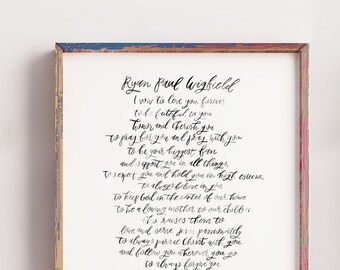 Ryan Paul Wigfield
I vow to love you forever
to be faithful to you
honor and cherish you
to pray for you and pray with you
to be your biggest fan
and support you in all things,
to respect you and hold you in high esteem
to always believe in you
to keep God in the center of our home
to be a loving mother to our
raises them to
love and serve Jesus passionately
to always pursue Christ with you
and follow you wherever you go
to always forgive you